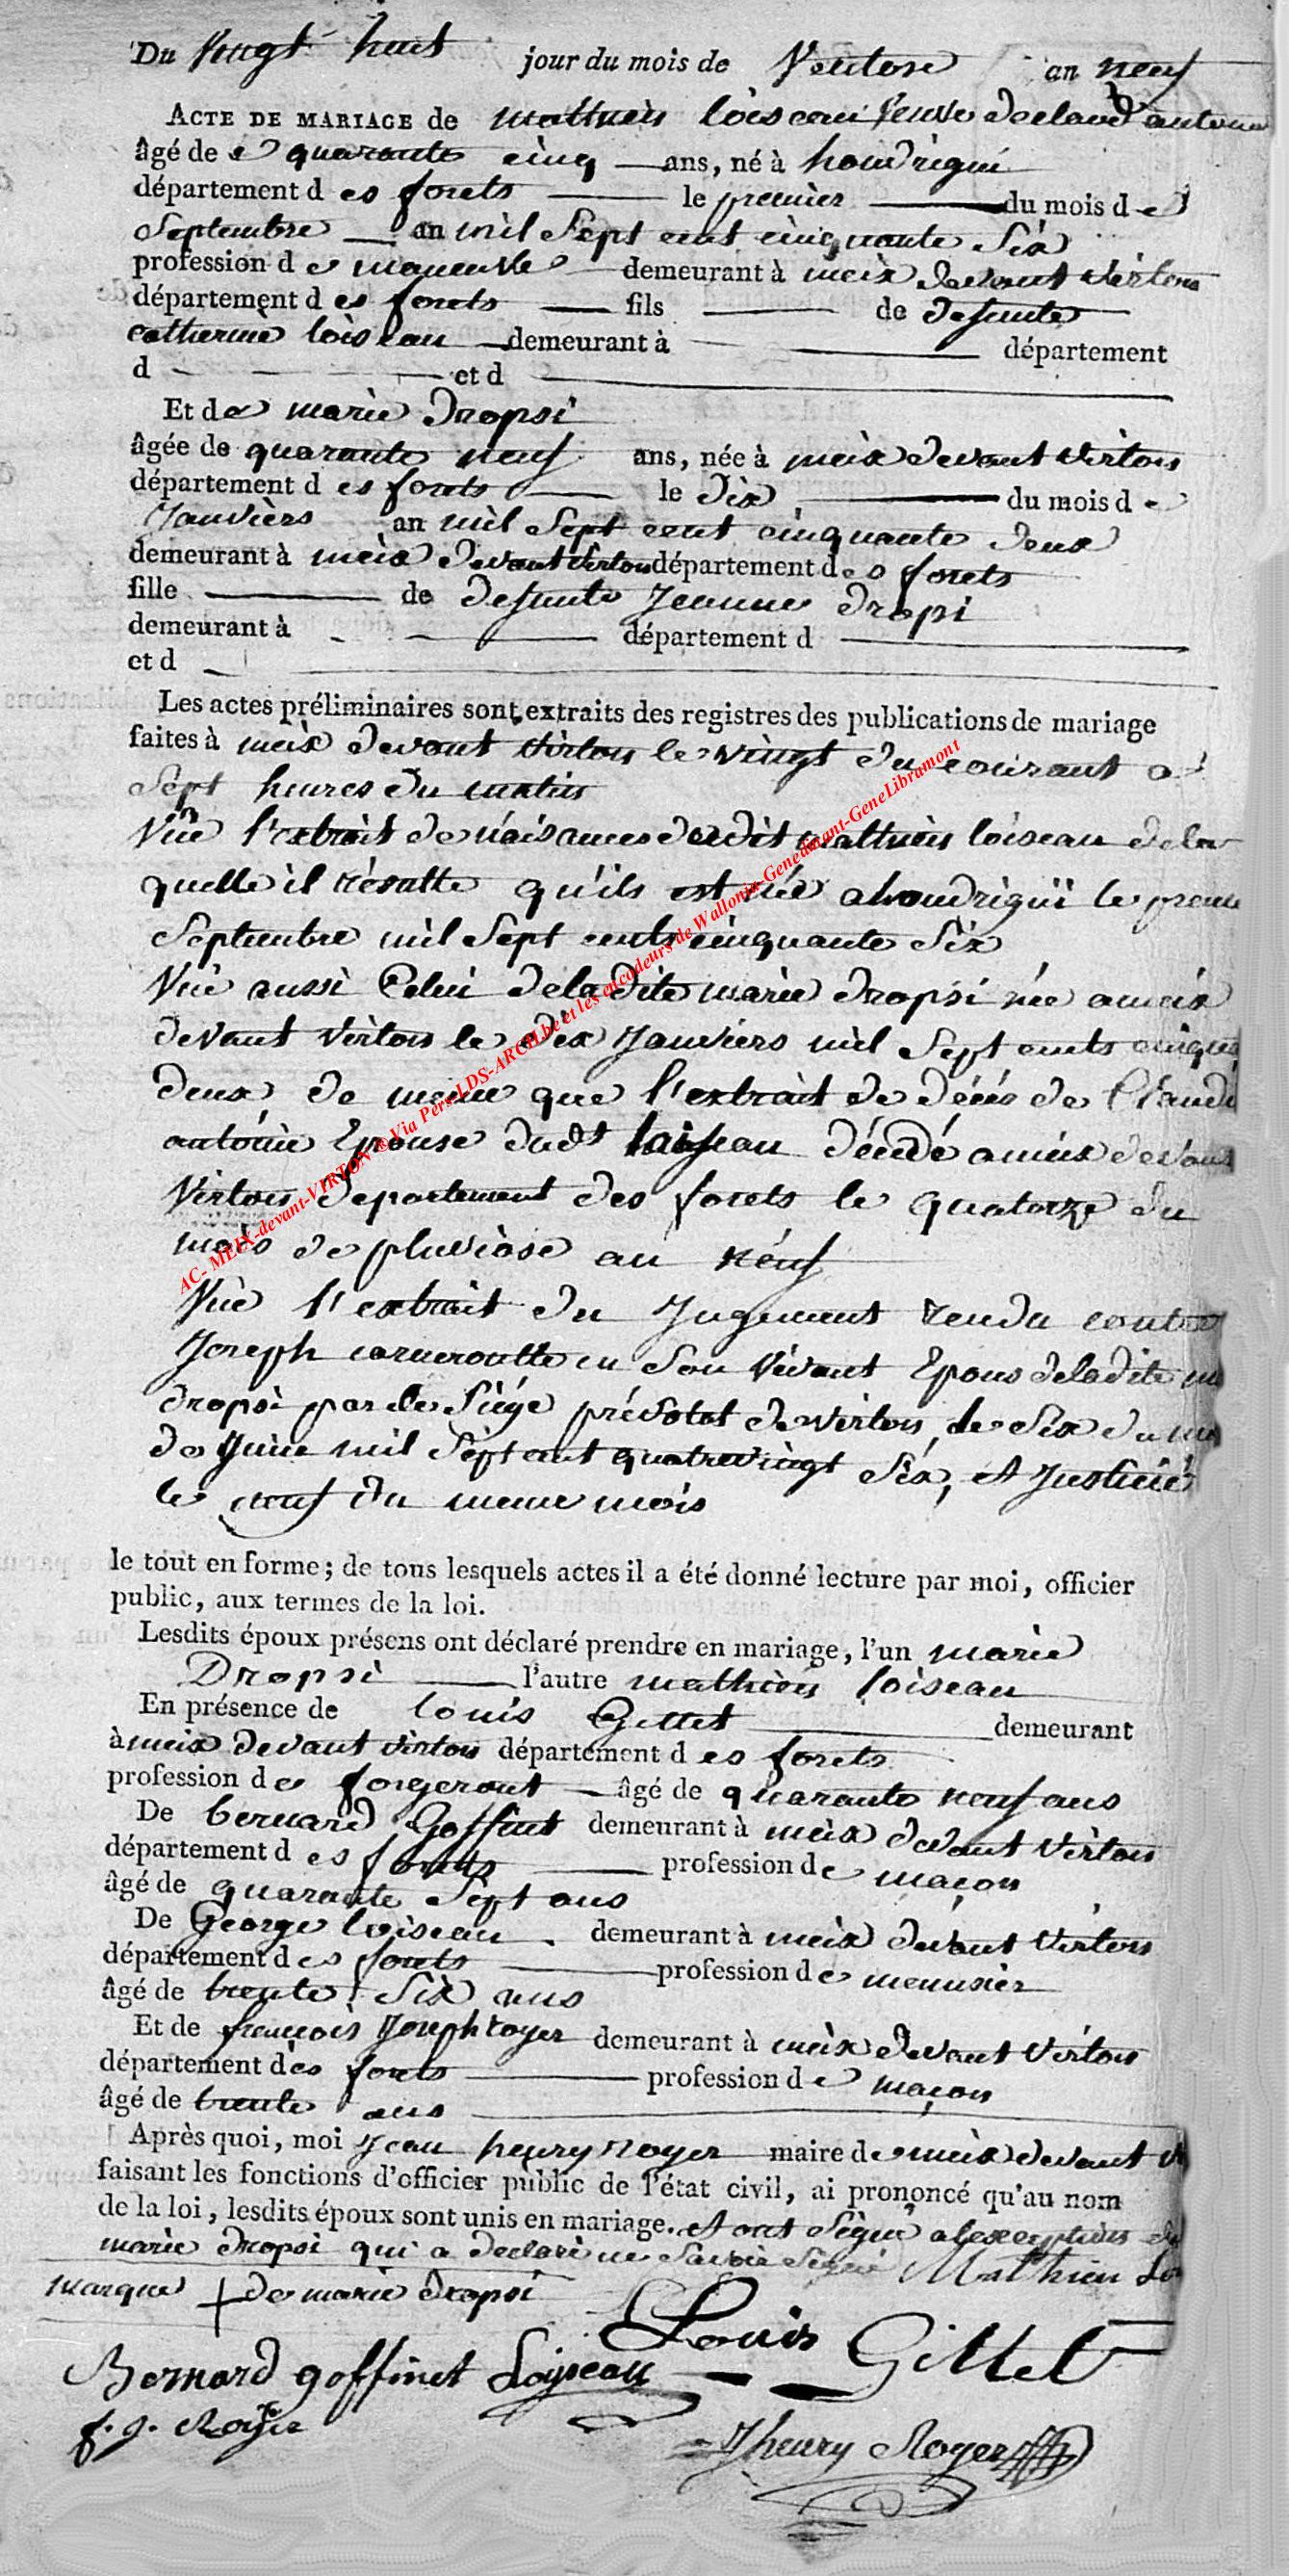 Du vingt huit jour du mois de Ventose an neuf
ACTE DE MARIAGE de mathieu loiseau veuve declaude antoine
âgé de quarante cinq ans, né à houdrigni
département des forets le premier du mois de
Septembre an mil Sept cent cinquante Six
profession de maneuvre demeurant à meix devant virton
département des forets fils de defunte
catherine loiseau demeurant à département
d et d
Et de marie dropsi
âgée de quarante neuf ans, née à meix devant virton
département des forets le dix du mois de
Janviers an mil Sept cent cinquante deux
demeurant à meix devant virton département des forets
fille de defunte Jeanne dropi
demeurant à département d
et d
Les actes préliminaires sont extraits des registres des publications de mariage
faites à meix devant virton le vingt du courant a
Sept heures du matin
Vûe l'extrait de naisances dudit mathieu loiseau dela
quelle il résulte qu'ils est née a houdrigni le premie
Septembre mil Sept cents cinquante Six
Vûe aussi Celui deladite marie dropsi née a meix
devant virton le dix Janviers mil Sept cents cinqua
deux de meme que l'extrait de décés de Claude
antoine Epouse dudt loiseau décédé a meix devant
Virton departement des forets le quatorze du
mois de pluviose an neuf
Vûe l'extrait du Jugement rendu contre
Joseph en Son vivant Epous deladite ma
dropsi par le Siége prévotal de virton, le Six du mois
de Juin mil Sept cent quatre vingt Six, et Justicié
le neuf du meme mois
le tout en forme; de tous lesquels actes il a été donné lecture par moi, officier
public, aux termes de la loi.
Lesdits époux présens ont déclaré prendre en mariage, l'un marie
Dropsi l'autre mathieu loiseau
En présence de louis Gillet demeurant
à meix devant virton département des forets
profession de forgeront âgé de quarante neuf ans
De bernard Goffinet demeurant à meix devant virton
département des forets profession de maçon
âgé de quarante Sept ans
De George loiseau demeurant à meix devant virton
département des forets profession de menusier
âgé de trente Six ans
Et de francois Joseph royer demeurant à meix devant virton
département des forets profession de maçon
âgé de trente ans
Après quoi, moi Jean henry royer maire de meix devant v
faisant les fonctions d'officier public de l'état civil, ai prononcé qu'au nom
de la loi, lesdits époux sont unis en mariage. et ont Signé a lexception de
marie dropsi qui a declaré ne Savoir Signé Mathieu Lo
marque + de marie dropsi
Louis Gillet
Bernard goffinet Loiseau
f. j. Royer
Jhenry Royer
AC- MEIX-devant-VIRTON ® Via Pers-LDS-ARCH.be et les encodeurs de Wallonia-Genedinant-GeneLibramont